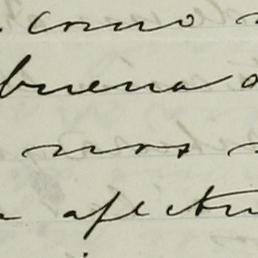 como
buena
nos
afectu